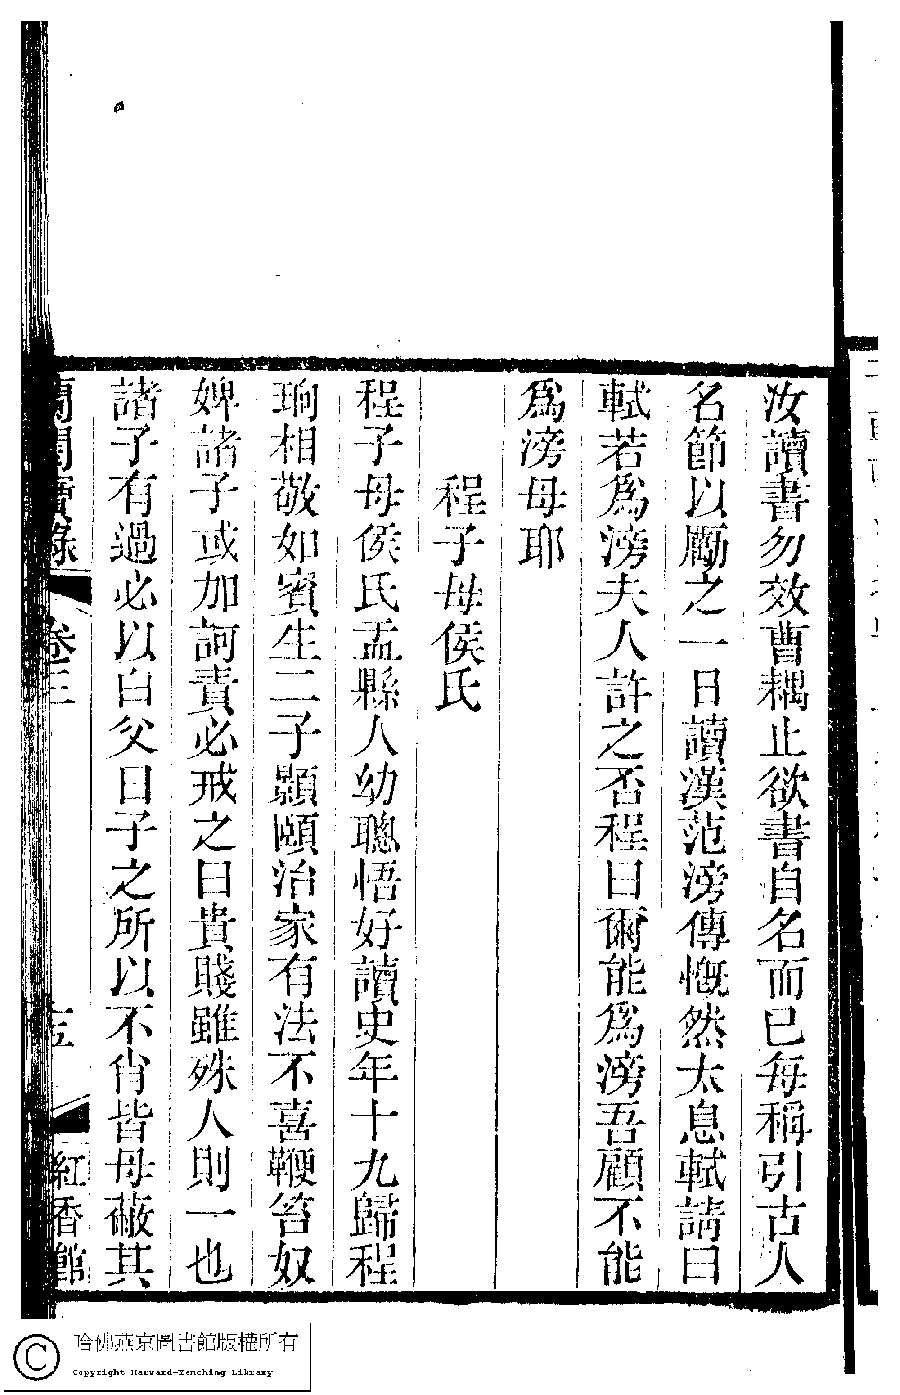 汝讀書勿效曹耦止欲書自名而已每稱引古人
名節以勵之一日讀漢范滂傳慨然太息軾請曰
軾若爲滂夫人許之否程曰爾能爲滂吾顧不能
爲滂母耶
程子母侯氏
程子母侯氏盂縣人幼聰悟好讀史年十九歸程
珦相敬如賓生二子顥頤治家有法不喜鞭笞奴
婢諸子或加訶責必戒之曰貴賤雖殊人則一也
諸子有過必以白父曰子之所以不肖皆母蔽其
蘭閨寶錄 卷三 紅香館
哈佛燕京圖書館版權所有
Copyright Harvard-Yenching Library